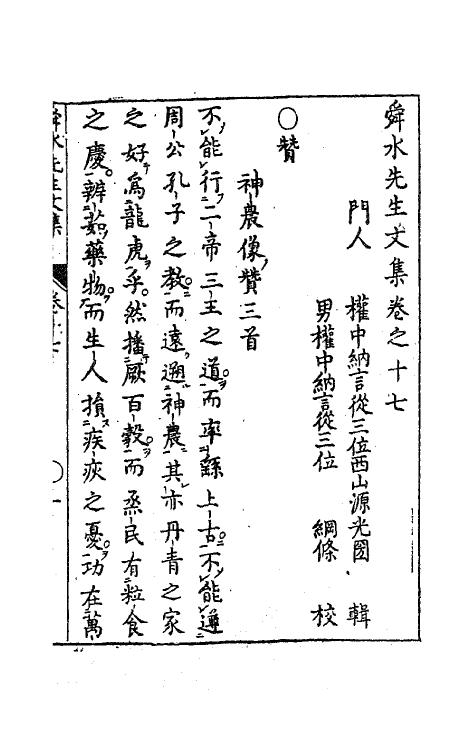 舜水先生文集卷之十七
門人 權中納言從三位西山源光圀 輯
男權中納言從三位 綱條 校
○贊
神農像贊三首
不能行二帝三王之道而率繇上古不能遵
周公孔子之教而遠遡神農其亦丹青之家
之好爲龍虎乎然播厥百穀而烝民有粒食
之慶辨茹藥物而生人損疾疢之憂功在萬
舜水先生文集 卷十七 ○ 一